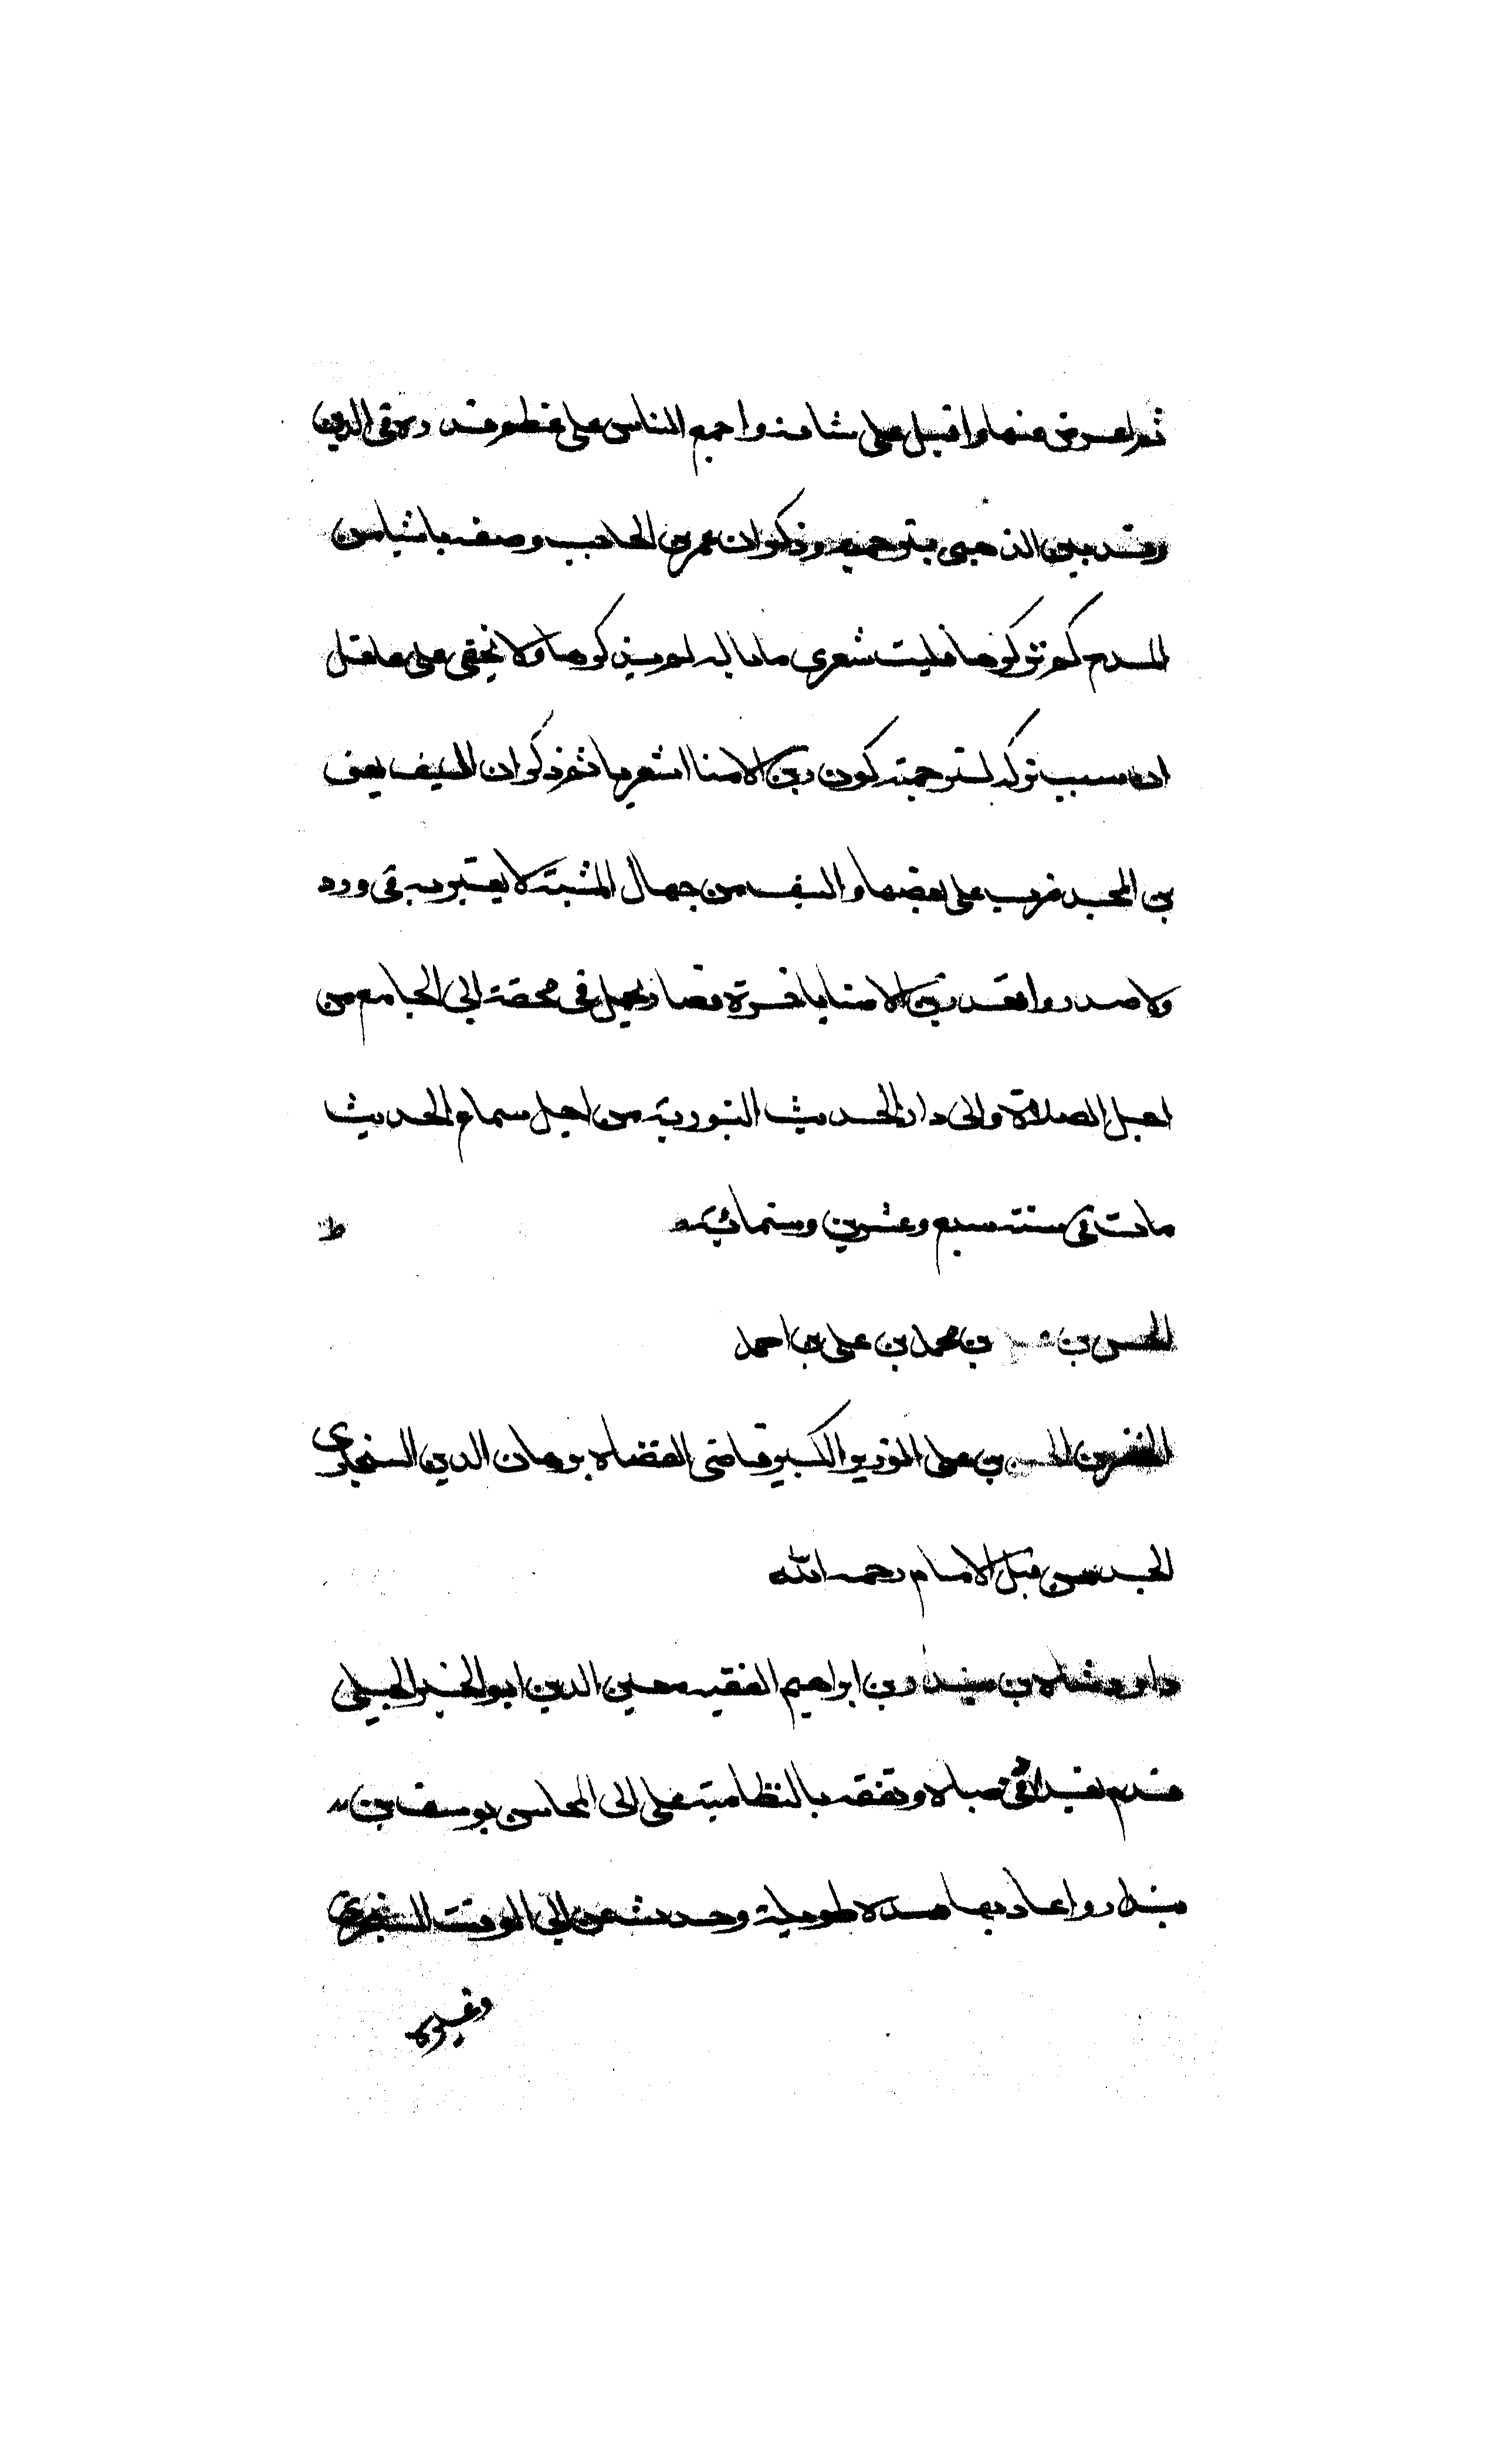 ثم اعرض عنها واقبل على شانه واجمع الناس على عظم قدره فى الدين
وقد بين الذهبى بترجمته وذكر ان عمر بن الحاجب وصفه باشياء من
المدح لم نذكرها فليت شعرى ما باله لم يذكرها ولا يخفى على عاقل
ان سبب تركه لترجمته كون زين الامنا اشعريا ثم ذكر ان السيف يعنى
بن المجد ضرب على بعضها والسيف من جهال المشبهة لا يعتبر به فى ورد
ولا صدر واقعد زين الامنا باخرة فصار يحمل فى محفة الى الجامع من
اجل الصلاة والى دار الحديث النورية من اجل سماع الحديث
مات فى سنة سبع وعشرين وستمائة
الحسن بن بن محمد بن على بن احمد
الخضر بن الحسن بن على الوزير الكبير قاضى القضاه برهان الدين السنجارى
الحسن قبل الامام رحمه الله
داور شاه بن بن ابراهيم الفقيه معين الدين ابو الخير الجيلى
قدم بغداد فى صباه وتفقه بالنظامية على ابى المحاسن يوسف بن
بندار واعاد بها مدة طويلة وحدث عن ابى الوقت السجزى
وغيره